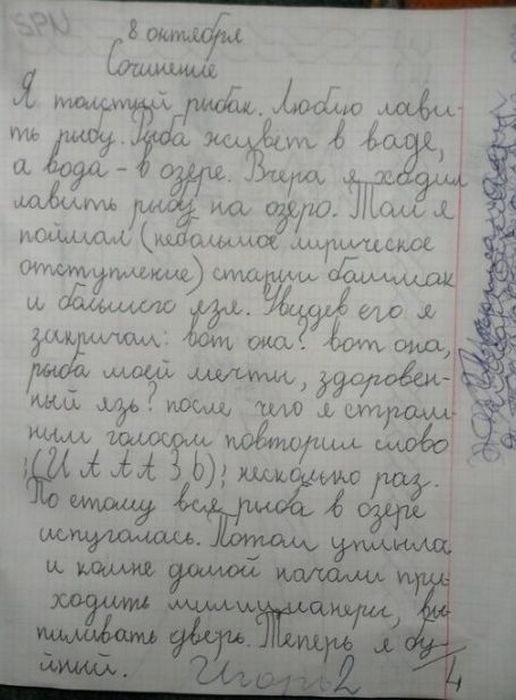 SPN
8 октября
Сочинение
Я толстый рыбак. Люблю лави-
ть рыбу. Рыба живет в ваде,
а вода - в озере. Вчера я хадил
лавить рыбу на озеро. Там я
поймал (небольшое лирическое
отступление) старии башмак
и большого язя. Увидев его я
закричал: вот она? вот она,
рыба моей мечты, здоровен-
ный язь? после чего я страш-
ным голосом повторил слово
;(И А А А З Ь); несколько раз.
По етому вся рыба в озере
испугалась. Потом уплыла
и комне домой начали при-
ходить милиционеры, вы-
пиливать дверь. Теперь я бу-
йный. Игорь 2/4